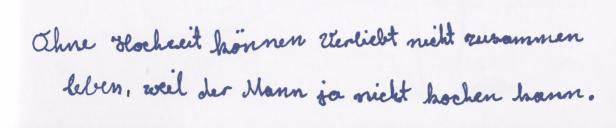 Ohne Hochzeit können Verliebt nicht zusammen
leben, weil der Mann ja nicht kochen kann.